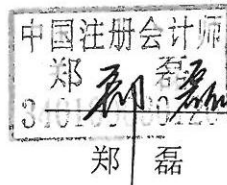 中国注册会计师
郑磊
郑磊